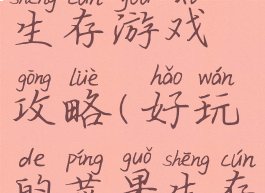 生存游戏
gōng lüè hǎo wán
攻略(好玩
de píng guǒ shēng cún
的苹果生存